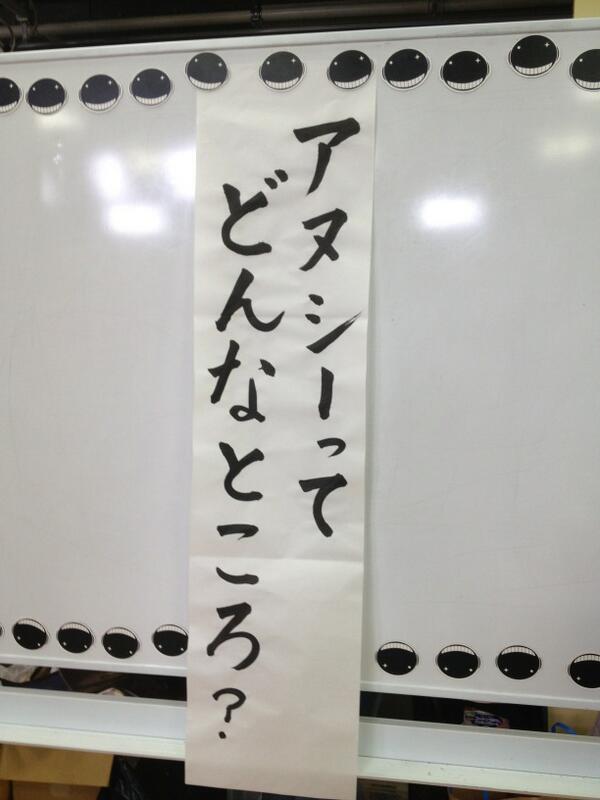 アヌシーって
どんなところ?